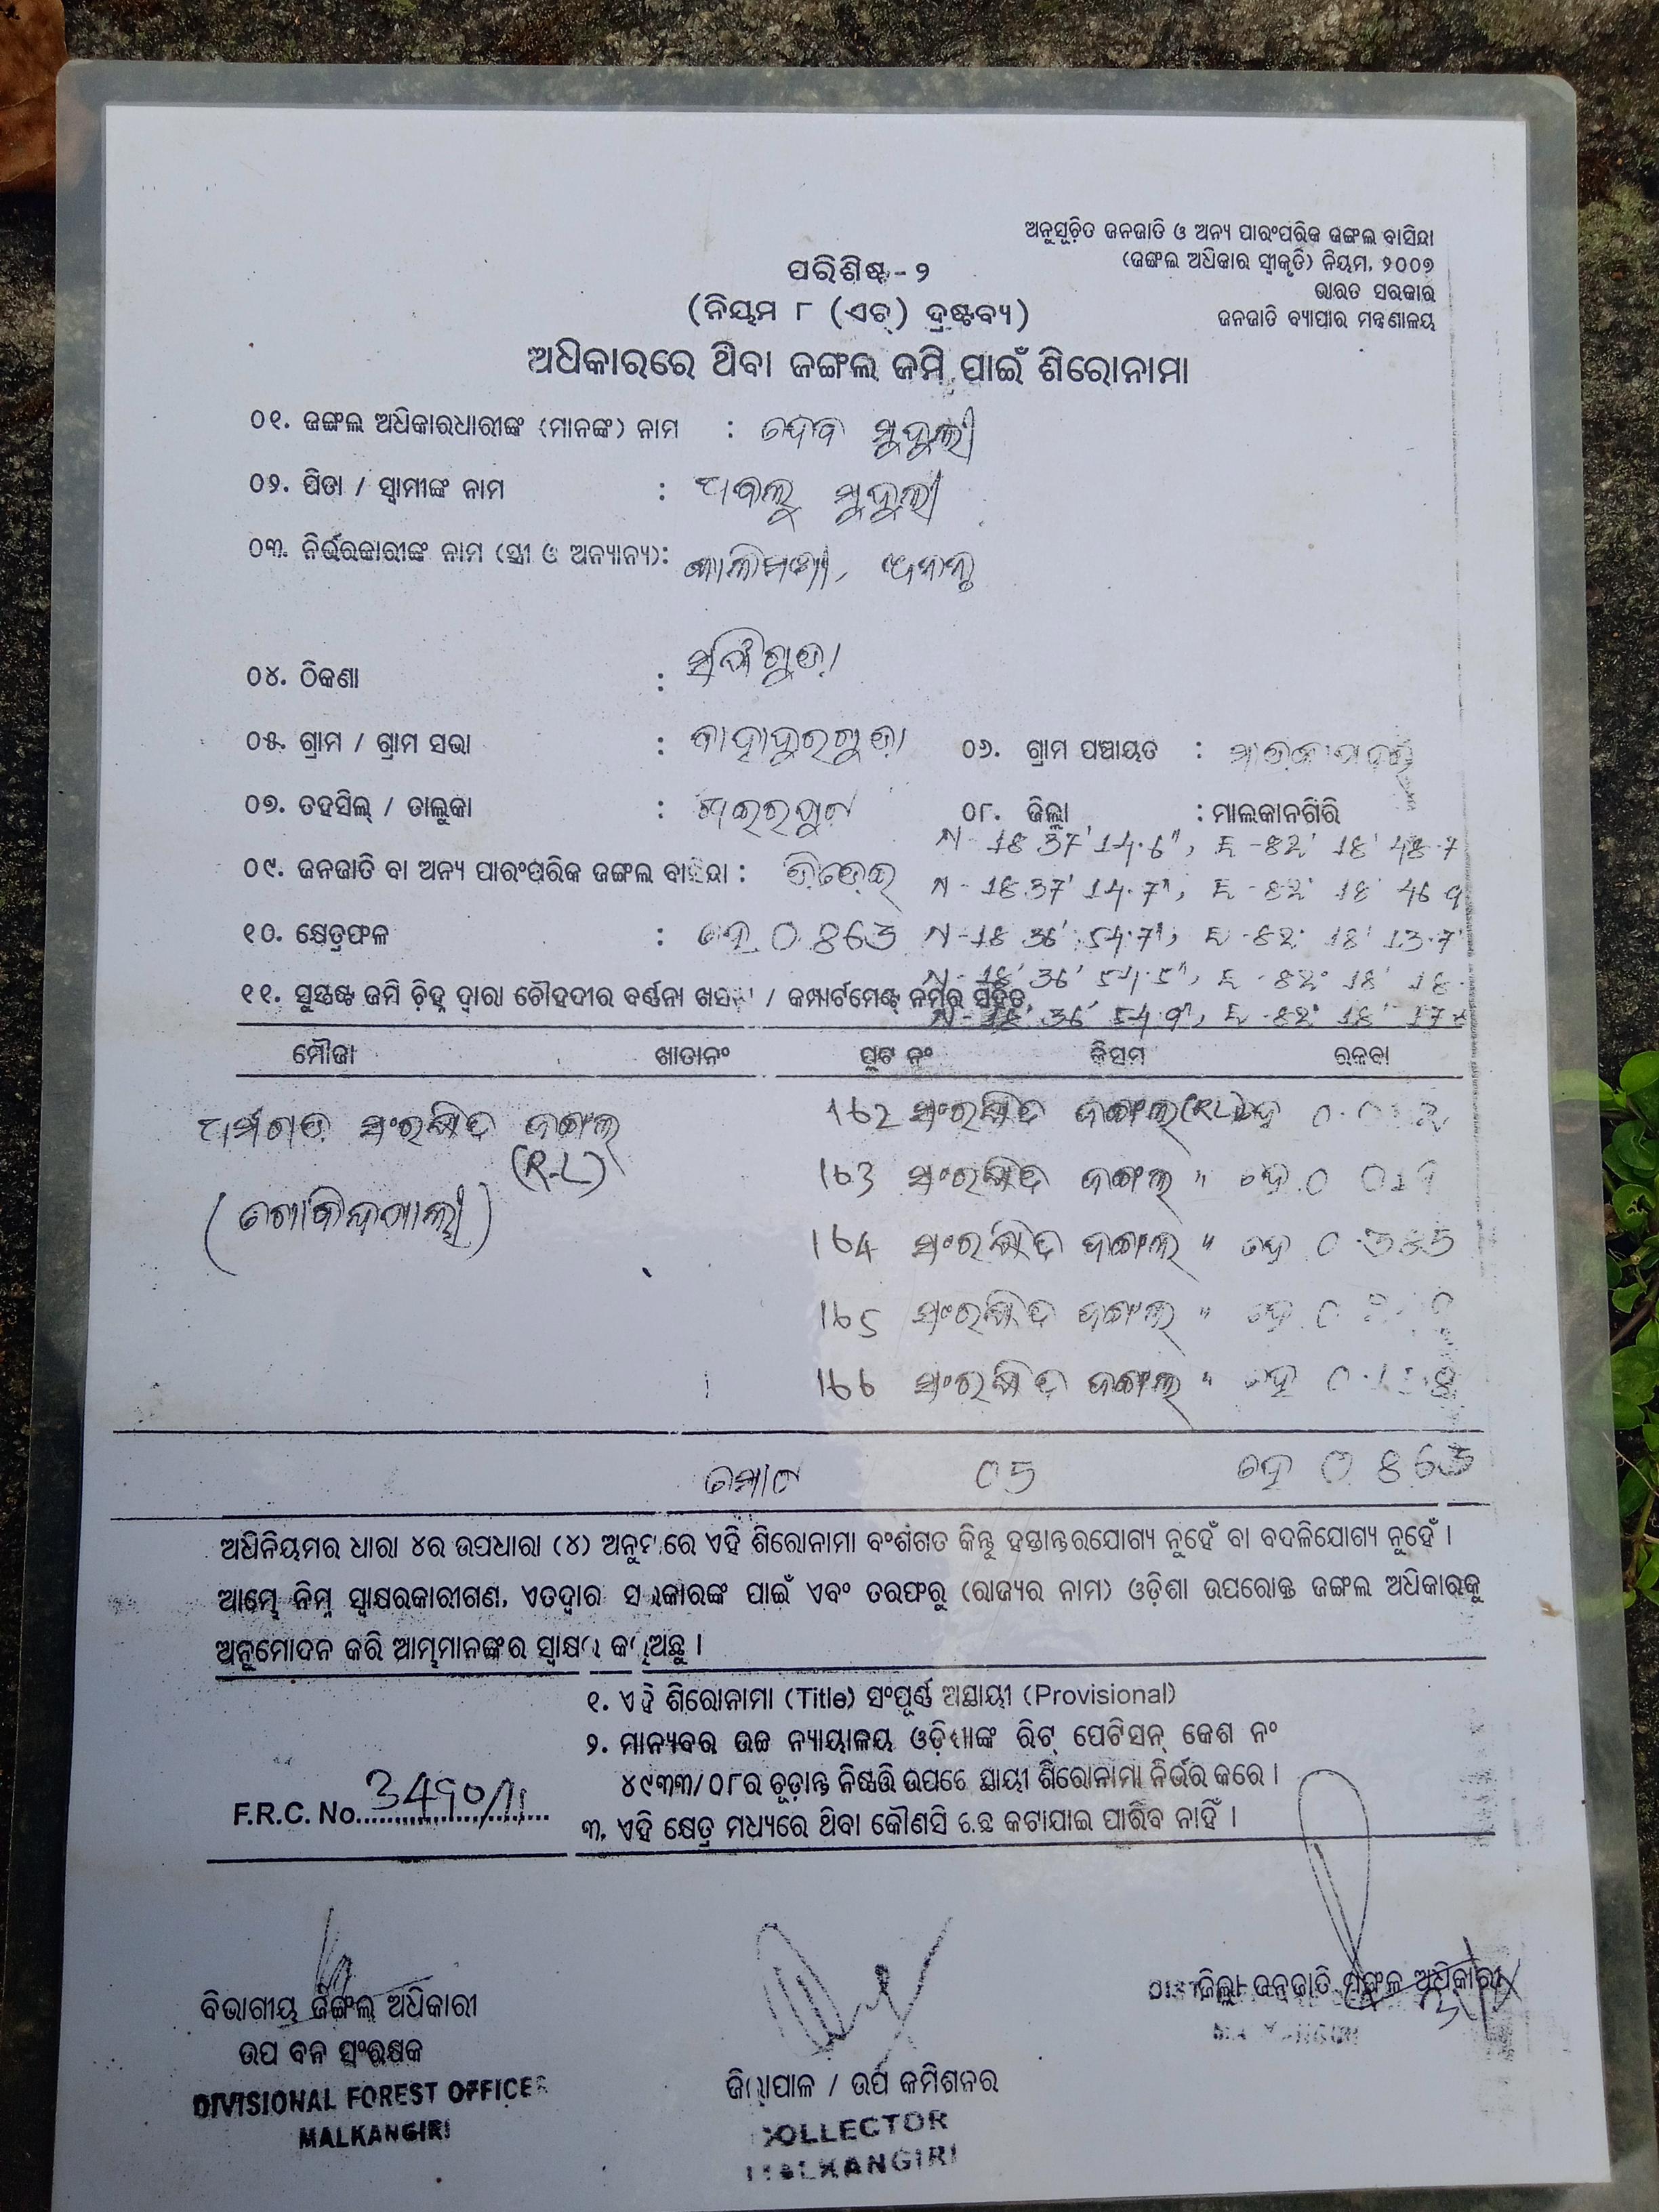 ଅନୁସୂଚିତ ଜନଜାତି ଓ ଅନ୍ୟ ପାରଂପରିକ ଜଙ୍ଗଲ ବାସିନ୍ଦା
(ଜଙ୍ଗଲ ଅଧିକାର ସ୍ୱୀକୃତି) ନିୟମ, ୨୦୦୭
ଭାରତ ସରକାର
ଜନଜାତି ବ୍ୟାପାର ମନ୍ତ୍ରଣାଳୟ
ପରିଶିଷ୍ଟ - ୨
(ନିୟମ ୮ (ଏଚ୍) ଦ୍ରଷ୍ଟବ୍ୟ)
ଅଧିକାରରେ ଥିବା ଜଙ୍ଗଲ ଜମି ପାଇଁ ଶିରୋନାମା
୦୧. ଜଙ୍ଗଲ ଅଧିକାରଧାରୀଙ୍କ (ମାନଙ୍କ) ନାମ : ଦେବ ମୁଦୁଲୀ
୦୨. ପିତା / ସ୍ୱାମୀଙ୍କ ନାମ : ମୁଦୁଲୀ
୦୩. ନିର୍ଭରକାରୀଙ୍କ ନାମ (ସ୍ତ୍ରୀ ଓ ଅନ୍ୟାନ୍ୟ):
୦୪. ଠିକଣା :
୦୫. ଗ୍ରାମ / ଗ୍ରାମ ସଭା : ବାହାଦୁରଗୁଡା ୦୬. ଗ୍ରାମ ପଞ୍ଚାୟତ :
୦୭. ତହସିଲ୍ / ତାଲୁକା : ଖଇରପୁଟ ୦୮. ଜିଲ୍ଲା : ମାଲକାନଗିରି
N - 18 37' 14.6", E - 82' 18' 48.7
୦୯. ଜନଜାତି ବା ଅନ୍ୟ ପାରଂପରିକ ଜଙ୍ଗଲ ବାସିନ୍ଦା : N - 18 37' 14.7", E - 82' 18' 46 9
୧୦. କ୍ଷେତ୍ରଫଳ : ହେ 0 863 N - 18 36' 54.7", E - 82' 18' 13.7'
N - 18' 36' 54.5", E - 82° 18' 18.
୧୧. ସୁସ୍ପଷ୍ଟ ଜମି ଚିହ୍ନ ଦ୍ୱାରା ଚୌହଦୀର ବର୍ଣନା / କମ୍ପାର୍ଟମେଣ୍ଟ୍ ନମ୍ବର ସହିତ
N - 18' 36' 54.9", E - 82' 18'
ମୌଜା ଖାତାନଂ ପ୍ଲଟ ନଂ କିସମ ରକବା
ସଂରକ୍ଷିତ ଜଙ୍ଗଲ 162 ସଂରକ୍ଷିତ ଜଙ୍ଗଲ (RL) ହେ
(R-L)
163 ସଂରକ୍ଷିତ ଜଙ୍ଗଲ " ହେ 0
(ଗୋବିନ୍ଦପାଲ୍ଲୀ)
164 ସଂରକ୍ଷିତ ଜଙ୍ଗଲ " ହେ
165 ସଂରକ୍ଷିତ ଜଙ୍ଗଲ " ହେ
166 ସଂରକ୍ଷିତ ଜଙ୍ଗଲ " ହେ
ମୋଟ 05 ହେ 0 863
ଅଧିନିୟମର ଧାରା ୪ର ଉପଧାରା (୪) ଏହି ଶିରୋନାମା ବଂଶଗତ କିନ୍ତୁ ହସ୍ତାନ୍ତରଯୋଗ୍ୟ ନୁହେଁ ବା ବଦଳିଯୋଗ୍ୟ ନୁହେଁ ।
ଆମ୍ଭେ ନିମ୍ନ ସ୍ୱାକ୍ଷରକାରୀଗଣ, ଏତଦ୍ୱାର ସରକାରଙ୍କ ପାଇଁ ଏବଂ ତରଫରୁ (ରାଜ୍ୟର ନାମ) ଓଡ଼ିଶା ଉପରୋକ୍ତ ଜଙ୍ଗଲ ଅଧିକାରକୁ
ଅନୁମୋଦନ କରି ଆମ୍ଭମାନଙ୍କର ସ୍ୱାକ୍ଷର କରୁଅଛୁ ।
୧. ଏହି ଶିରୋନାମା (Title) ସଂପୂର୍ଣ୍ଣ ଅସ୍ଥାୟୀ (Provisional)
୨. ମାନ୍ୟବର ଉଚ୍ଚ ନ୍ୟାୟାଳୟ ଓଡ଼ିଶାଙ୍କ ରିଟ୍ ପେଟିସନ୍ କେଶ ନଂ
୪୯୩୩/୦୮ର ଚୂଡ଼ାନ୍ତ ନିଷ୍ପତ୍ତି ଉପରେ ସ୍ଥାୟୀ ଶିରୋନାମା ନିର୍ଭର କରେ ।
F.R.C. No. 3490/11
୩. ଏହି କ୍ଷେତ୍ର ମଧ୍ୟରେ ଥିବା କୌଣସି ଗଛ କଟାଯାଇ ପାରିବ ନାହିଁ ।
ବିଭାଗୀୟ ଜଙ୍ଗଲ ଅଧିକାରୀ
ଉପ ବନ ସଂରକ୍ଷକ
DIVISIONAL FOREST OFFICER
MALKANGIRI
ଜିଲ୍ଲାପାଳ / ଉପ କମିଶନର
COLLECTOR
MALKANGIRI
ଜିଲ୍ଲା ଜନଜାତି ମଙ୍ଗଳ ଅଧିକାରୀ
MALKANGIRI